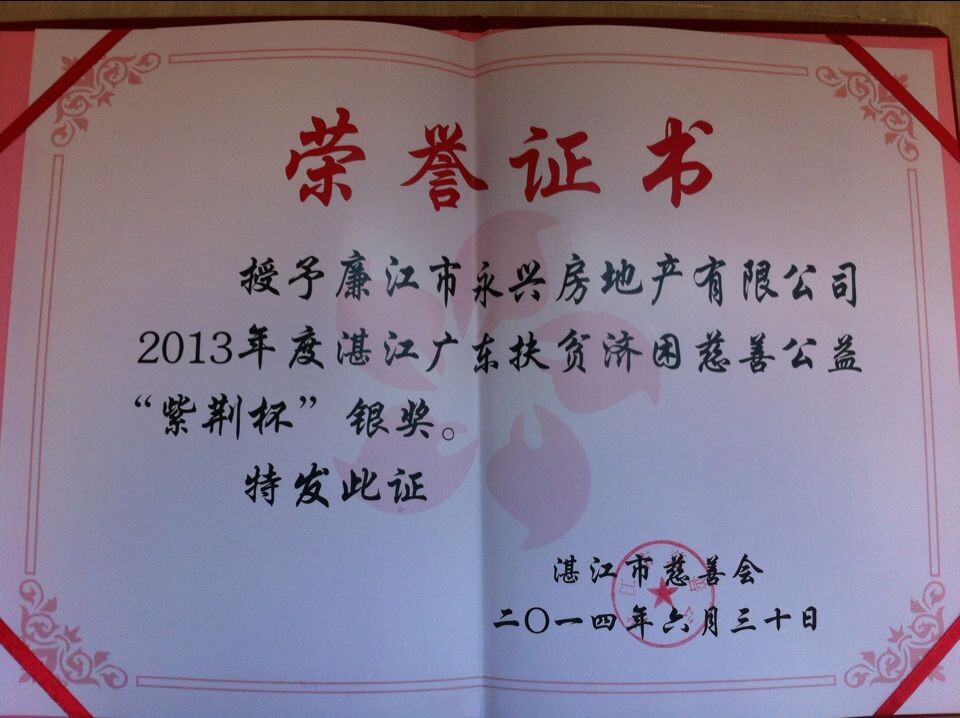 荣誉证书
授予廉江市永兴房地产有限公司
2013年度湛江广东扶贫济困慈善公益
“紫荆杯”银奖。
特发此证
湛江市慈善会
二〇一四年六月三十日